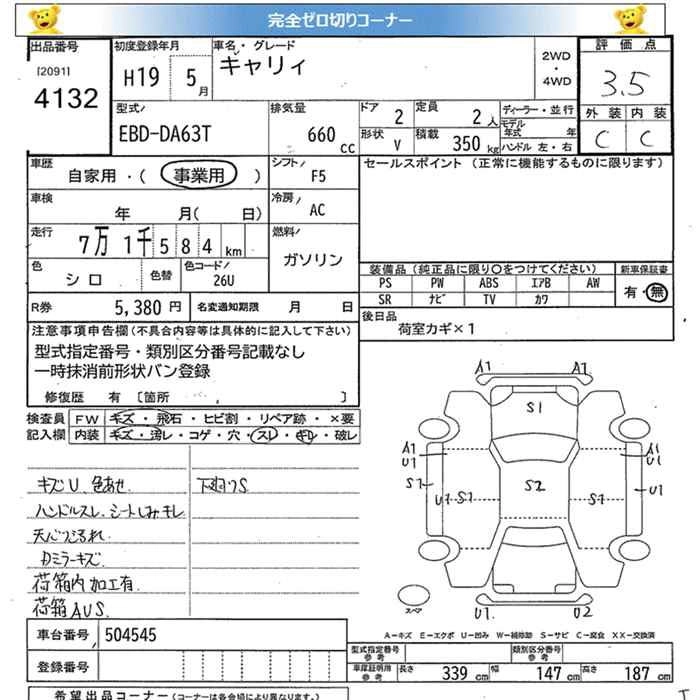 完全ゼロ切りコーナー
出品番号
[2091]
4132
初度登録年月
H19 5月
車名・グレード
キャリィ
2WD
・
4WD
評価点
3.5
外装 内装
C C
型式
EBD-DA63T
排気量
660 cc
ドア 2
定員 2人
形状 V
積載 350 kg
ディーラー・並行
モデル年式 年
ハンドル 左・右
車歴
自家用・(事業用)
シフト
F5
車検
年 月( 日)
冷房
AC
走行
7万1千584km
燃料
ガソリン
色
シロ
色替
色コード
26U
R券 5,380円
名変通知期限 月 日
セールスポイント (正常に機能するものに限ります)
装備品 (純正品に限り〇をつけてください)
PS PW ABS エアB AW
SR ナビ TV カワ
新車保証書
有・無
後日品
荷室カギ×1
注意事項申告欄(不具合内容等は具体的に記入して下さい)
型式指定番号・類別区分番号記載なし
一時抹消前形状バン登録
修復歴 有 [箇所 ]
検査員記入欄
FW キズ・飛石・ヒビ割・リペア跡・×要
内装 キズ・汚レ・コゲ・穴・スレ・キレ・破レ
キズU、色あせ、
ハンドルスレ、シートしみキレ
Dミラーキズ
荷箱内加工有
荷箱AUS
A1 A1
S1
A1 U1
A1 U1
S1
U1 S1
S2
S1
U1
スペア
U1 U2
A－キズ E－エクボ U－凹み W－補修跡 S－サビ C－腐食 XX－交換済
車台番号 504545
登録番号
型式指定番号
参考
類別区分番号
参考
車庫証明用
参考
長さ 339 cm 幅 147 cm 高さ 187 cm
希望出品コーナー(コーナーは各会場により異なります。)